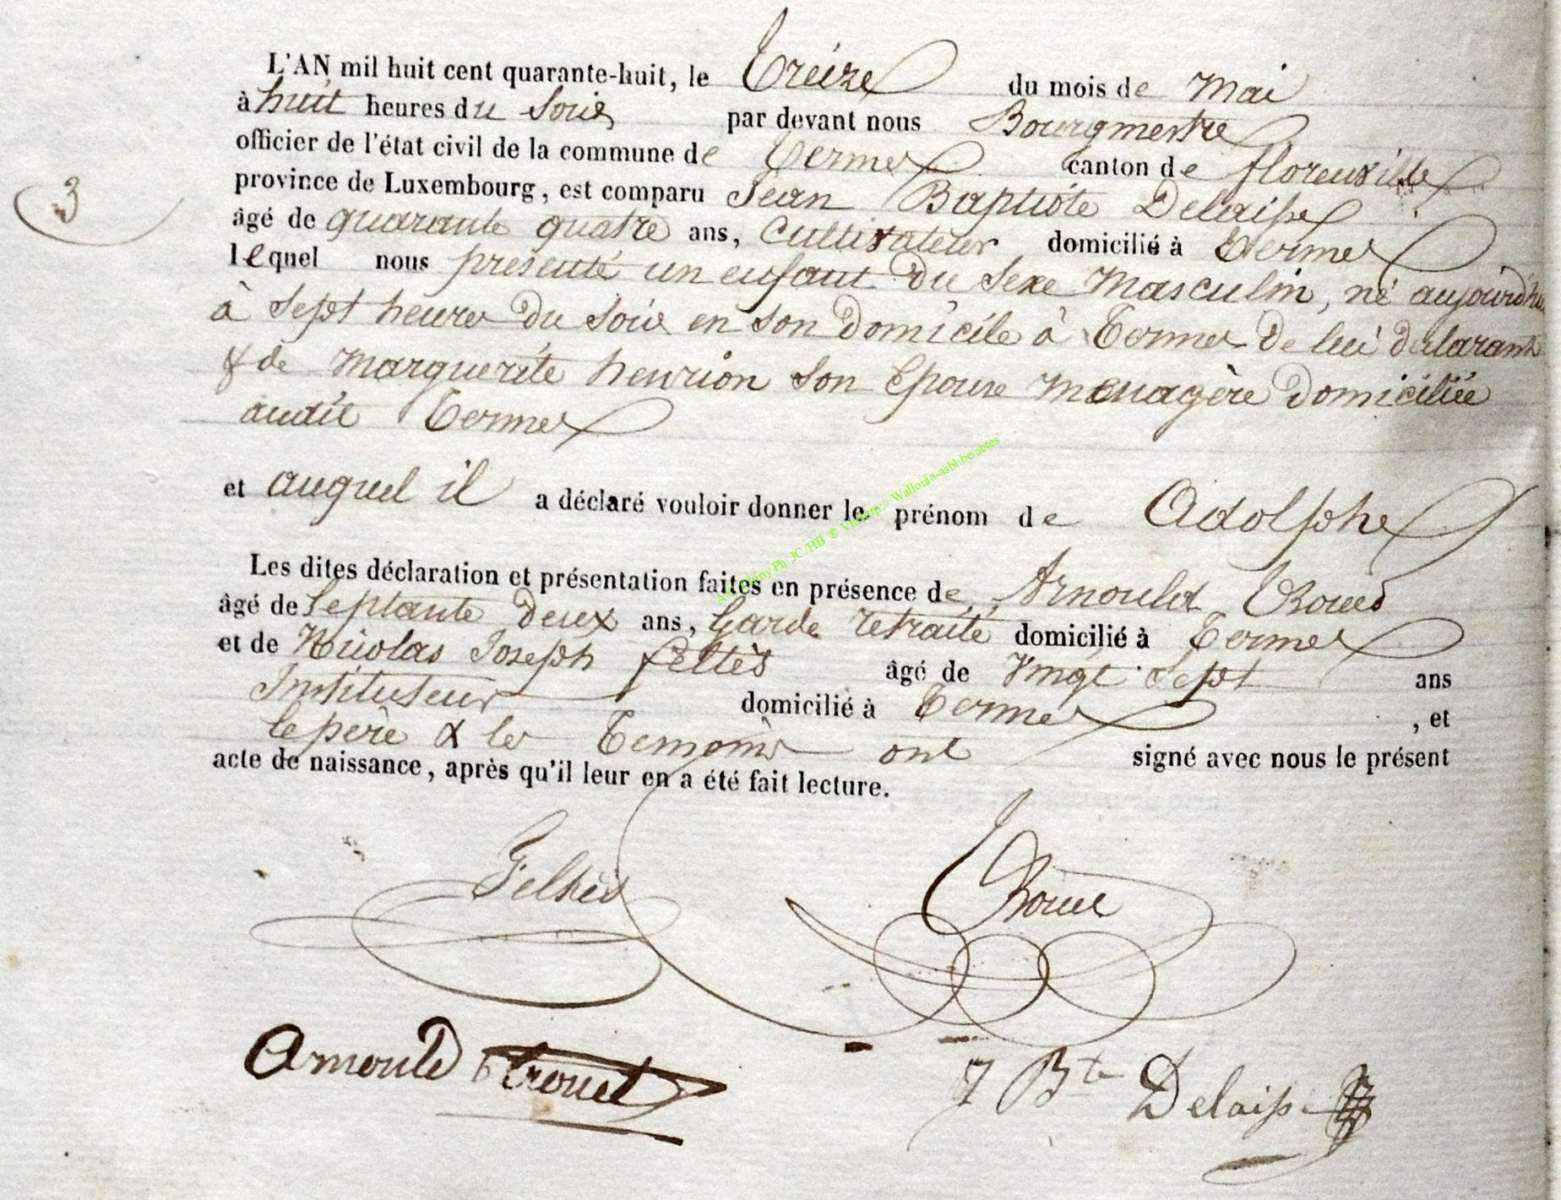 L'AN mil huit cent quarante-huit, le treize du mois de mai
à huit heures du soir par devant nous Bourgmestre
officier de l'état civil de la commune de termes canton de florenville
3
province de Luxembourg, est comparu Jean Baptiste Delaisse
âgé de quarante quatre ans, Cultivateur domicilié à termes
lequel nous présenté un enfant du sexe masculin, né aujourd'hui
à sept heures du soir en son domicile à termes de lui déclarant
& de marguerite henrion son épouse menagère domiciliée
audit termes
et auquel il a déclaré vouloir donner le prénom de Adolphe
Les dites déclaration et présentation faites en présence de Arnould
âgé de septante deux ans, garde retraité domicilié à termes
et de Nicolas Joseph feltès âgé de vingt sept ans
Instituteur domicilié à termes , et
le père & les temoins ont signé avec nous le présent
acte de naissance, après qu'il leur en a été fait lecture.
Arnould
J Bte Delaisse